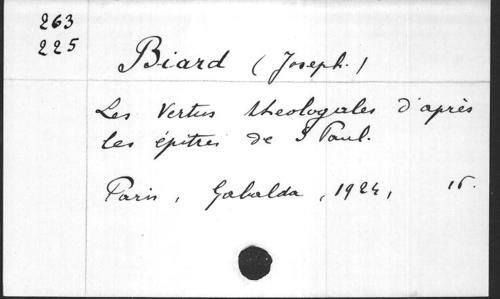 263
225
Biard (Joseph.)
Les Vertus théologales d'après
les épitres de S Paul.
Paris, Gabalda, 1924, 16.